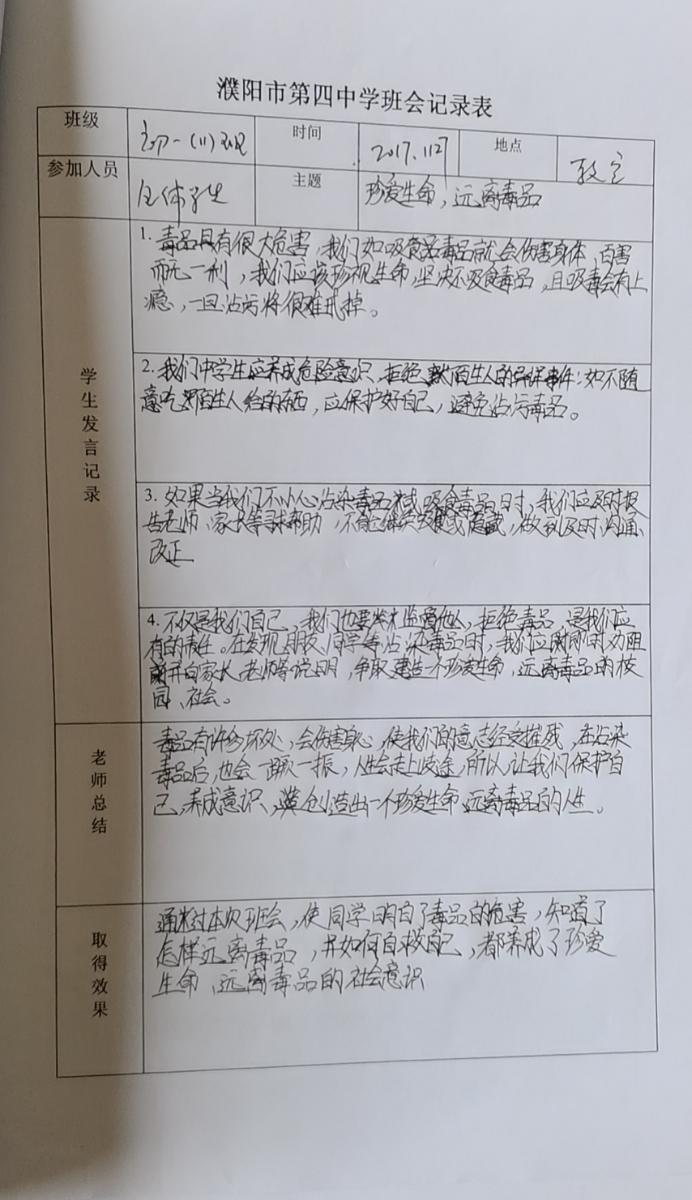 濮阳市第四中学班会记录表
班级 初一(11)班 时间 2017.11.27 地点 教室
参加人员 全体学生 主题 珍爱生命，远离毒品
学生发言记录
1. 毒品具有很大危害，我们如吸食品毒品就会伤害身体，百害
而无一利，我们应该珍视生命，坚决不吸食毒品，且吸毒会有上
瘾，一旦沾污将很难戒掉。
2. 我们中学生应养成危险意识，拒绝陌生人的事件：如不随
意吃陌生人给的东西，应保护好自己，避免沾污毒品。
3. 如果当我们不小心沾染毒品或吸食毒品时，我们应及时报
告老师、家长等寻求帮助，不能继续或隐藏，做到及时沟通、
改正
4. 不仅是我们自己，我们也要监督他人，拒绝毒品，是我们应
有的责任。在发现朋友、同学等沾染毒品时，我们应即时力阻
并向家长、老师等说明，争取建造一个珍爱生命，远离毒品的校
园、社会。
老师总结
毒品有许多坏处，会伤害身心，使我们的意志经受摧残，在沾染
毒品后，也会一蹶一振，人生会走上歧途，所以，让我们保护自
己，养成意识，创造出一个珍爱生命，远离毒品的人生。
取得效果
通过本次班会，使同学明白了毒品的危害，知道了
怎样远离毒品，并如何自救自己，都养成了珍爱
生命、远离毒品的社会意识